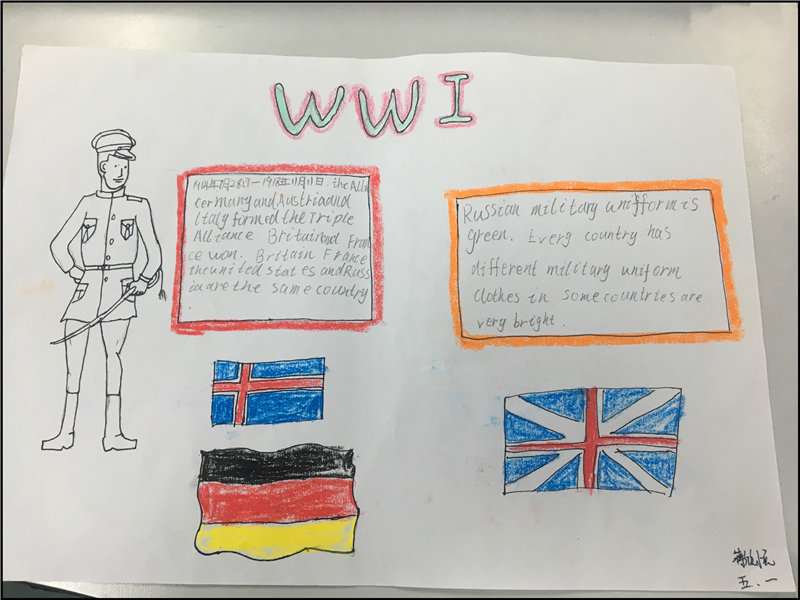 WWI
1914年7月28日—1918年11月11日. the All
Germany and Austria and
Italy firmed the Triple
Alliance Britain and Fran
ce won. Britain France
the united states and Russ
ia are the same country
.
Russian military uniform is
green. Every country has
different military uniform
clothes in some countries are
very bright.
五、一